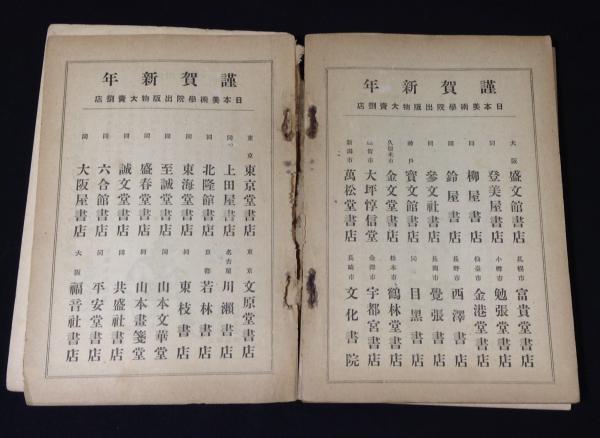 謹賀新年
日本美術學院出版物大賣捌店
大阪 盛文館書店
同 登美屋書店
同 柳屋書店
同 鈴屋書店
同 參文社書店
神戸 寶文館書店
久留米市 金文堂書店
佐賀市 大坪惇信堂
新潟市 萬松堂書店
札幌市 富貴堂書店
小樽市 勉張堂書店
仙臺市 金港堂書店
長野市 西澤書店
長岡市 覺張書店
同 目黑書店
松本市 鶴林堂書店
金澤市 宇都宮書店
長崎市 文化書院
謹賀新年
日本美術學院出版物大賣捌店
東京 東京堂書店
同 上田屋書店
同 北隆館書店
同 東海堂書店
同 至誠堂書店
同 盛春堂書店
同 誠文堂書店
同 六合館書店
同 大阪屋書店
東京 文原堂書店
名古屋 川瀬書店
京都 若林書店
同 東枝書店
同 山本文華堂
同 山本畫箋堂
同 共盛社書店
同 平安堂書店
大阪 福音社書店